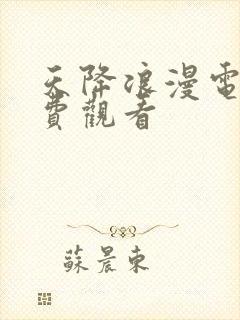 天降浪漫電
費觀看
蘇晨東